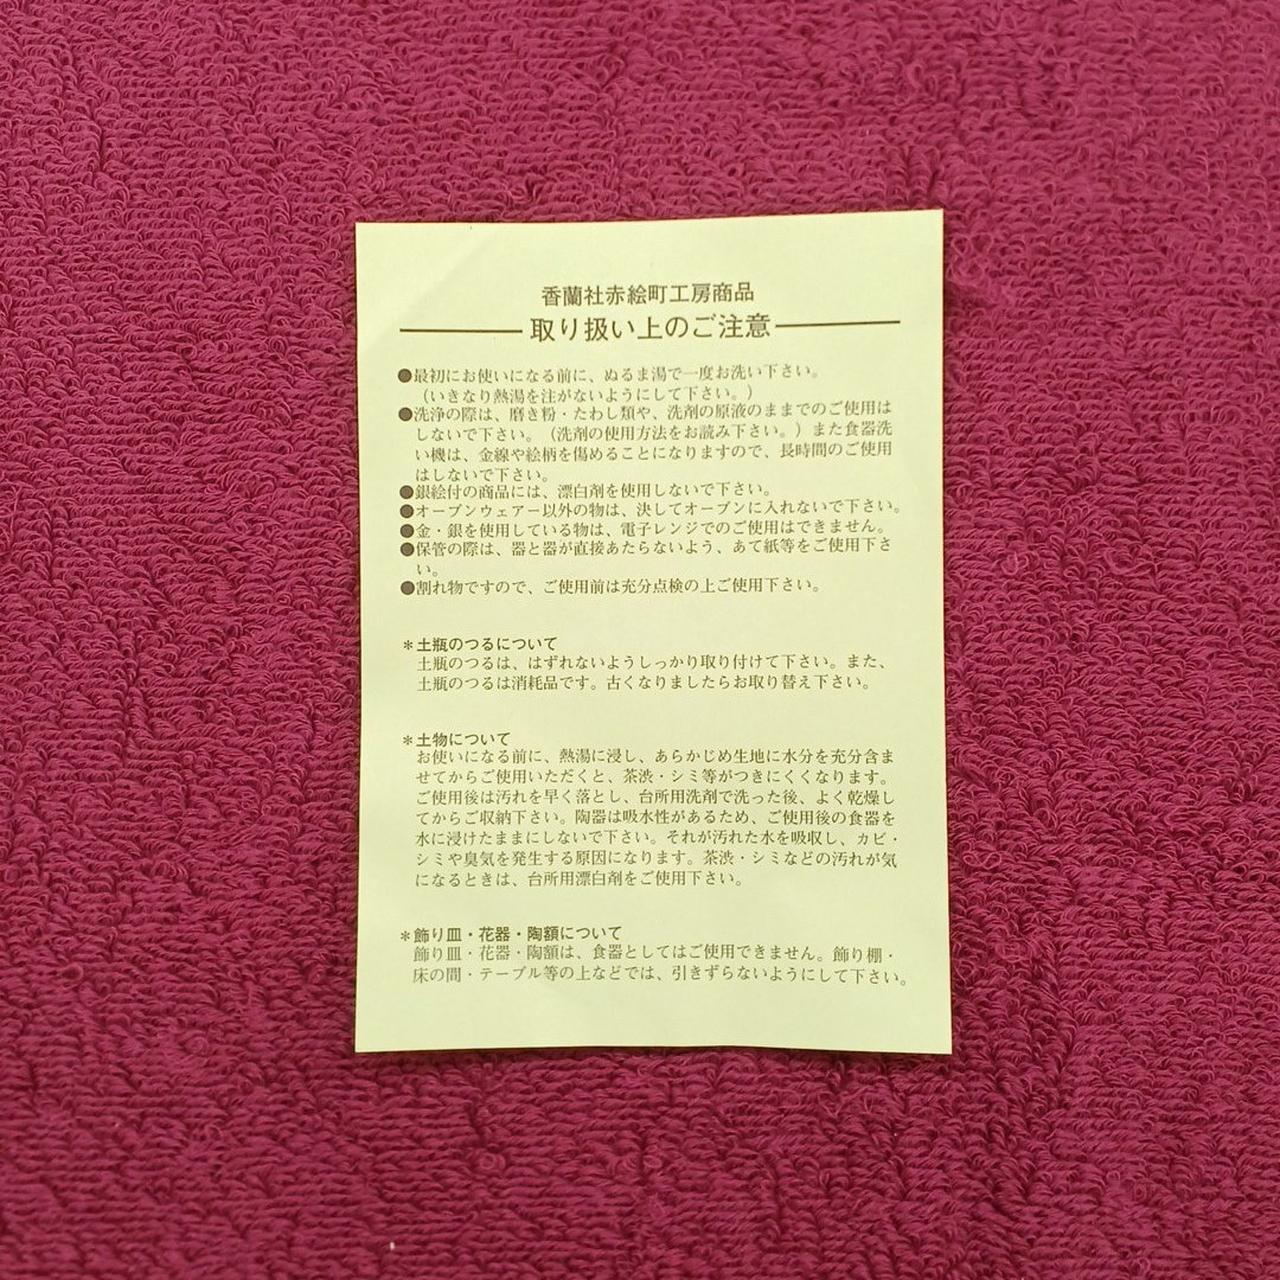 香蘭社赤絵町工房商品
取り扱い上のご注意
●最初にお使いになる前に、ぬるま湯で一度お洗い下さい。
（いきなり熱湯を注がないようにして下さい。）
●洗浄の際は、磨き粉・たわし類や、洗剤の原液のままでのご使用は
しないで下さい。（洗剤の使用方法をお読み下さい。）また食器洗
い機は、金線や絵柄を傷めることになりますので、長時間のご使用
はしないで下さい。
●銀絵付の商品には、漂白剤を使用しないで下さい。
●オーブンウェアー以外の物は、決してオーブンに入れないで下さい。
●金・銀を使用している物は、電子レンジでのご使用はできません。
●保管の際は、器と器が直接あたらないよう、あて紙等をご使用下さ
い。
●割れ物ですので、ご使用前は充分点検の上ご使用下さい。
＊土瓶のつるについて
土瓶のつるは、はずれないようしっかり取り付けて下さい。また、
土瓶のつるは消耗品です。古くなりましたらお取り替え下さい。
＊土物について
お使いになる前に、熱湯に浸し、あらかじめ生地に水分を充分含ま
せてからご使用いただくと、茶渋・シミ等がつきにくくなります。
ご使用後は汚れを早く落とし、台所用洗剤で洗った後、よく乾燥し
てからご収納下さい。陶器は吸水性があるため、ご使用後の食器を
水に浸けたままにしないで下さい。それが汚れた水を吸収し、カビ・
シミや臭気を発生する原因になります。茶渋・シミなどの汚れが気
になるときは、台所用漂白剤をご使用下さい。
＊飾り皿・花器・陶額について
飾り皿・花器・陶額は、食器としてはご使用できません。飾り棚・
床の間・テーブル等の上などでは、引きずらないようにして下さい。